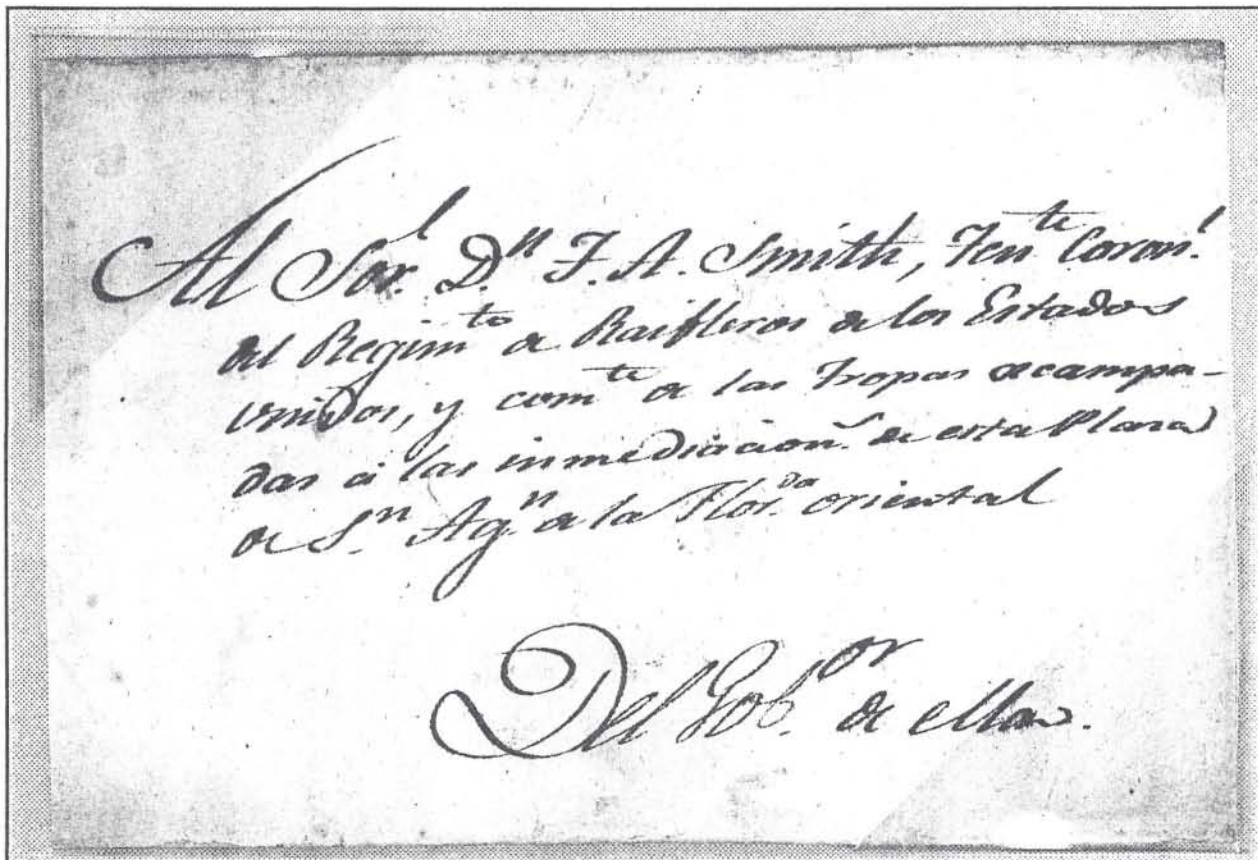 Al Sor. Dn. F. A. Smith, Tente Coronl.
del Regimto de Raifleros de los Estados
Unidos, y comte de las Tropas acampa-
das á las inmediacions. de esta Plaza
de Sn. Agn. de la Florda. oriental
Del Gobor. de ella.